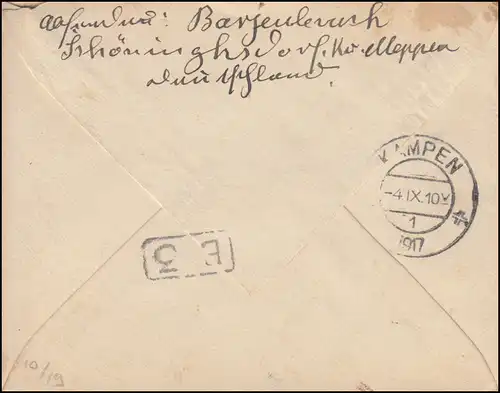 Absenderin: Barjenbruch
Schöninghsdorf. Kr. Meppen
Deutschland.
KAMPEN
-4.IX.10V
1
1917
E 3
10/19